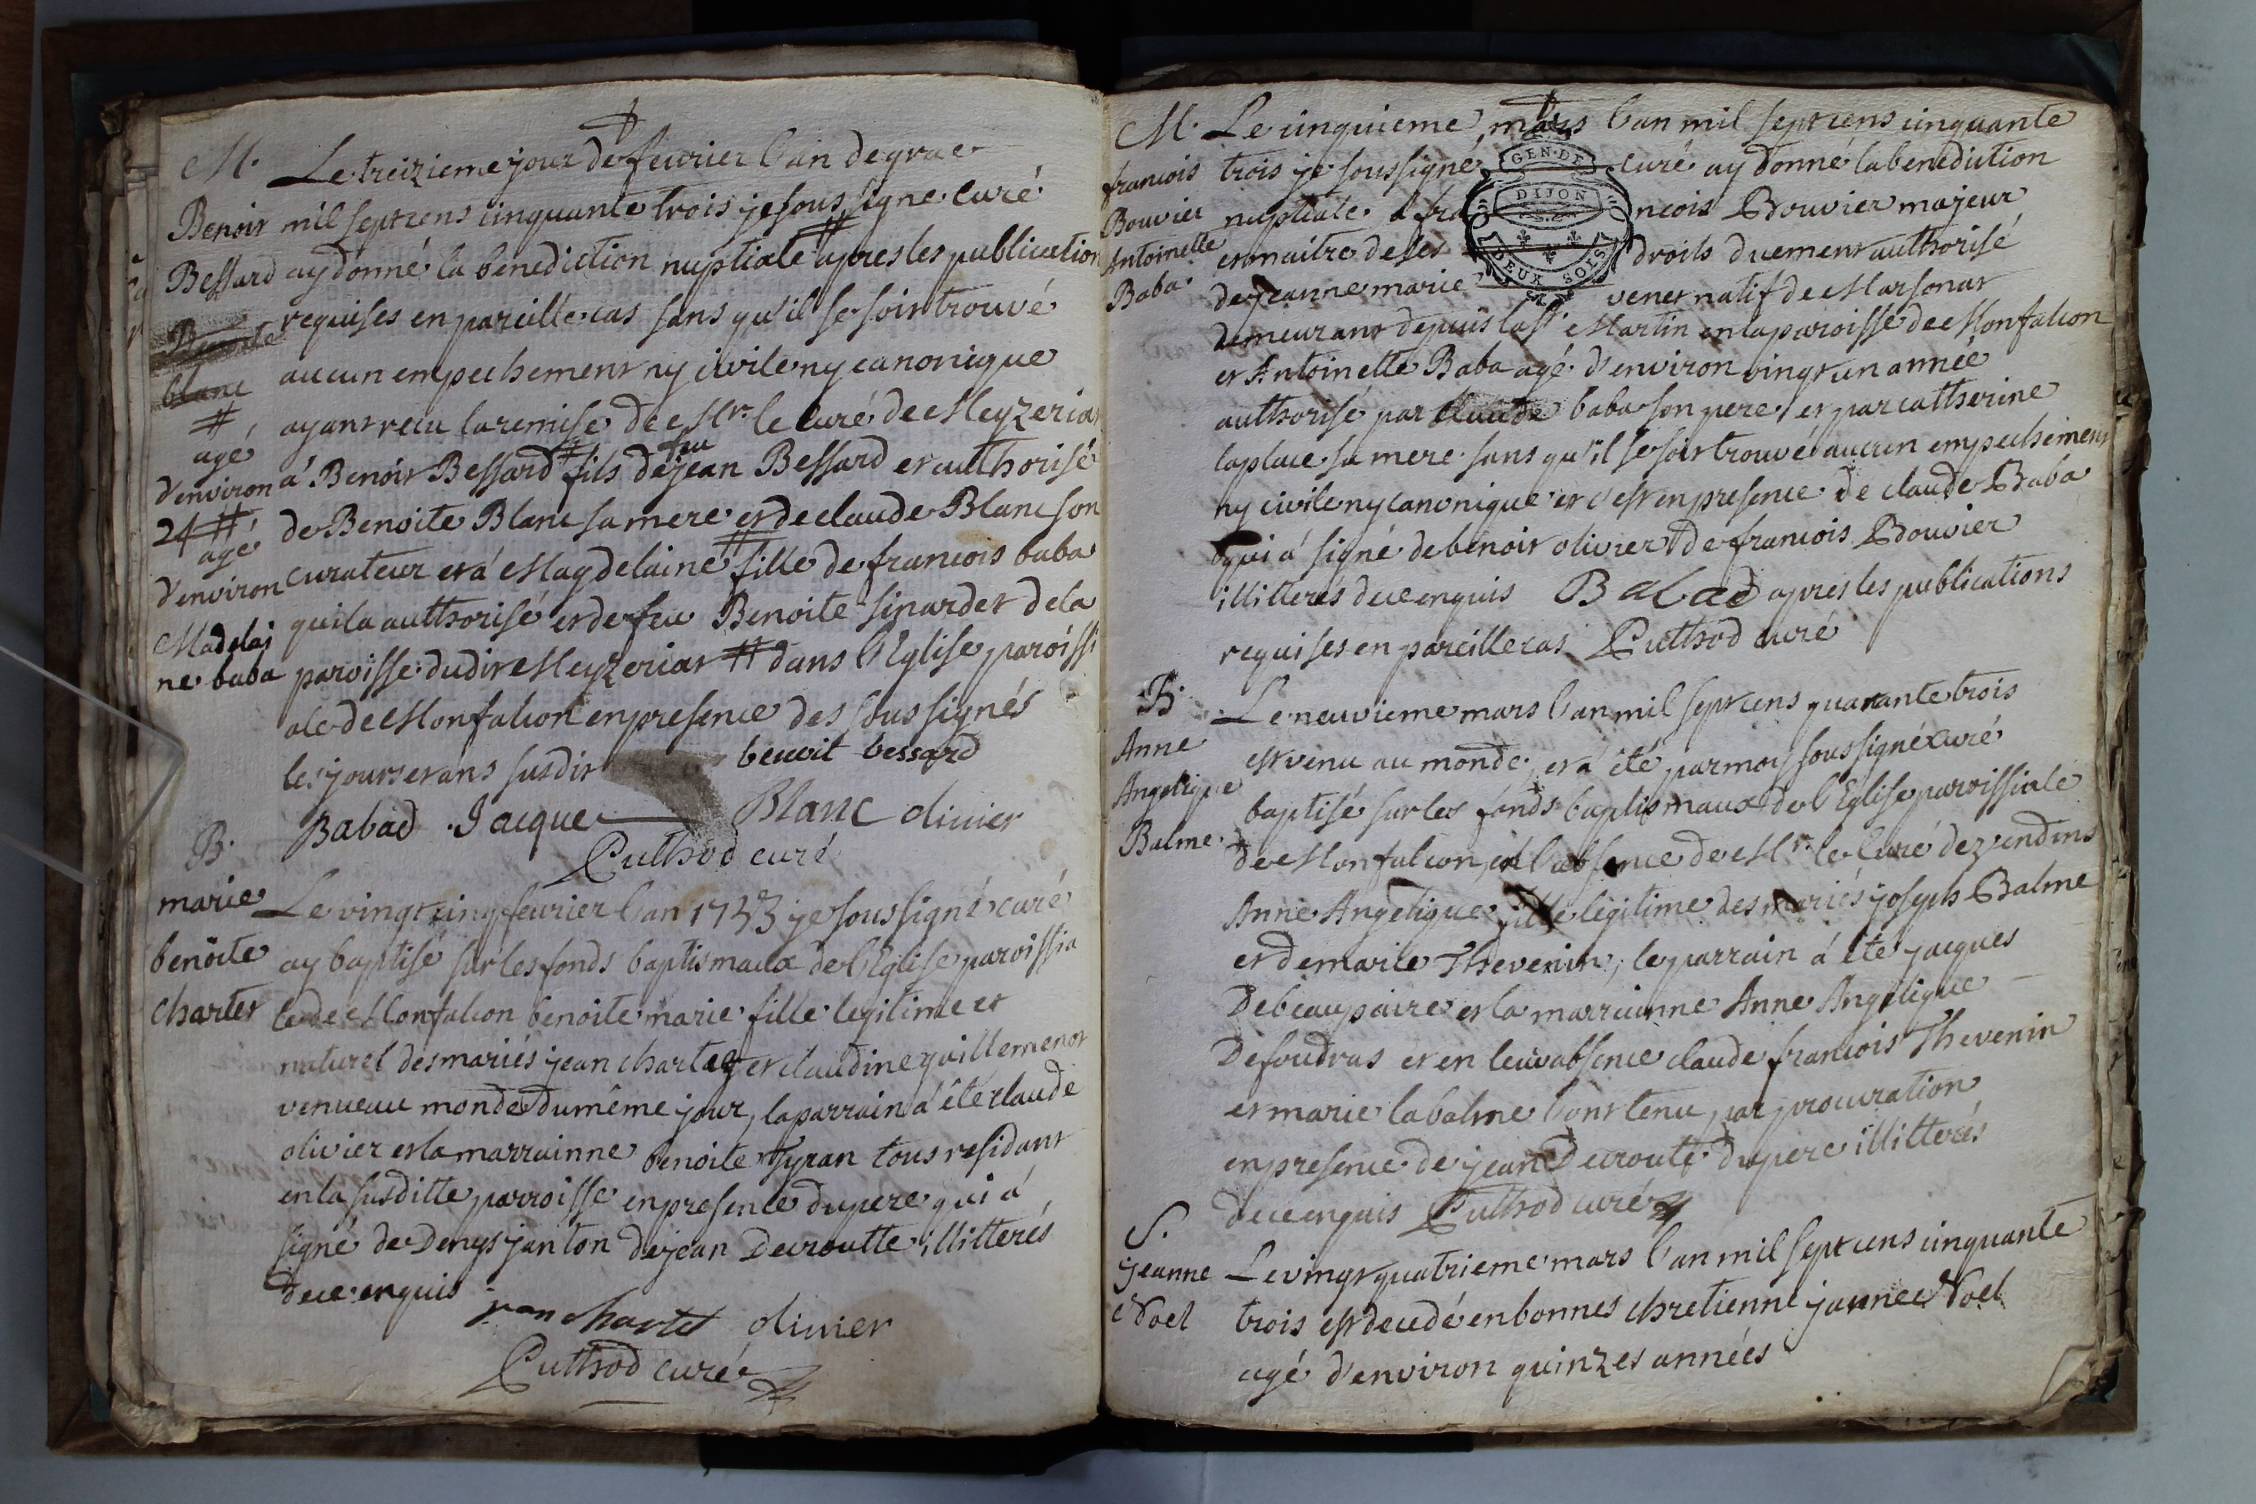 M.
Le treizieme jour de fevrier l'an de grace
Benoit mil sept cens cinquante trois je sous signe curé
Bessard ay donné la benediction nuptiale # apres les publication
requises en pareille cas sans qu'il se soit trouvé
blanc aucun empechement ny civile ny canonique
# ayant recu la remise de Mr. le curé de Meyzeriat
agé
d'environ á Benoit Bessard # fils de feu jean Bessard et authorisé
24 # de Benoite Blanc sa mere et de claude Blanc son
agé
d'environ curateur et á Magdelaine # fille de francois baba
Madelai qui la authorisé et de feu Benoite sinardet de la
ne baba paroisse dudit Meyzeriat # dans l'Eglise paroissi
ale de Monfalcon en presence des sous signés
les jours et ans susdit benoit bessard
Babad Jacque Blanc olivier
Puthod curé
B.
marie Le vingt cinq fevrier l'an 1753 je sous signé curé
benoite ay baptisé sur les fonds baptismaux de l'Eglise paroissia
Chartet le de Monfalcon benoite marie fille legitime et
naturel des mariés jean chartet et claudine guillemenot
venue au monde du même jour, la parrain a été claude
olivier et la marrainne benoite Tyran tous residant
en la susditte parroisse en presence du pere qui á
signé de Denys janton de jean Decroutte illitterés
de ce enquis
jean chartet olivier
Puthod curé
M. Le cinquieme mars l'an mil sept cens cinquante
francois trois je soussigné curé ay donné la benediction
Bouvier nuptiale á francois Bouvier majeur
Antoinette et maitre de ses droits duement authorisé
Baba de jeanne marie venet natif de Marsonat
GEN. DE
DIJON
DEUX SOLS
demeurant depuis la st Martin en la paroisse de Monfalcon
et Antoinette Baba agé d'environ vingt un année
authorisé par claude baba son pere et par catherine
laplace sa mere sans qu'il se soit trouvé aucun empechement
ny civile ny canonique et c'est en presence de claude Baba
qui á signé de benoit olivier de francois Bouvier
illitterés de ce enquis Babad apres les publications
requises en pareille cas Puthod curé
B.
Le neuvieme mars l'an mil sept cens quarante trois
Anne est venu au monde et a été par moy sous signé curé
Angelique baptisé sur les fonds baptismaux de l'Eglise paroissiale
Balme de Monfalcon en l'absence de Mr. le curé dezvendins
Anne Angelique fille legitime des mariés joseph Balme
et de marie Thevenin, le parrain á été jacques
Debeaupaire et la marrainne Anne Angelique
Defoudras et en leur absence claude francois Thevenin
et marie labalme l'ont tenu par procuration
en presence de jean Decroute du pere illitterés
de ce enquis Puthod curé
S.
jeanne Le vingt quatrieme mars l'an mil sept cens cinquante
Noel trois est decedé en bonnes chretienne jeanne Noel
agé d'environ quinzes années